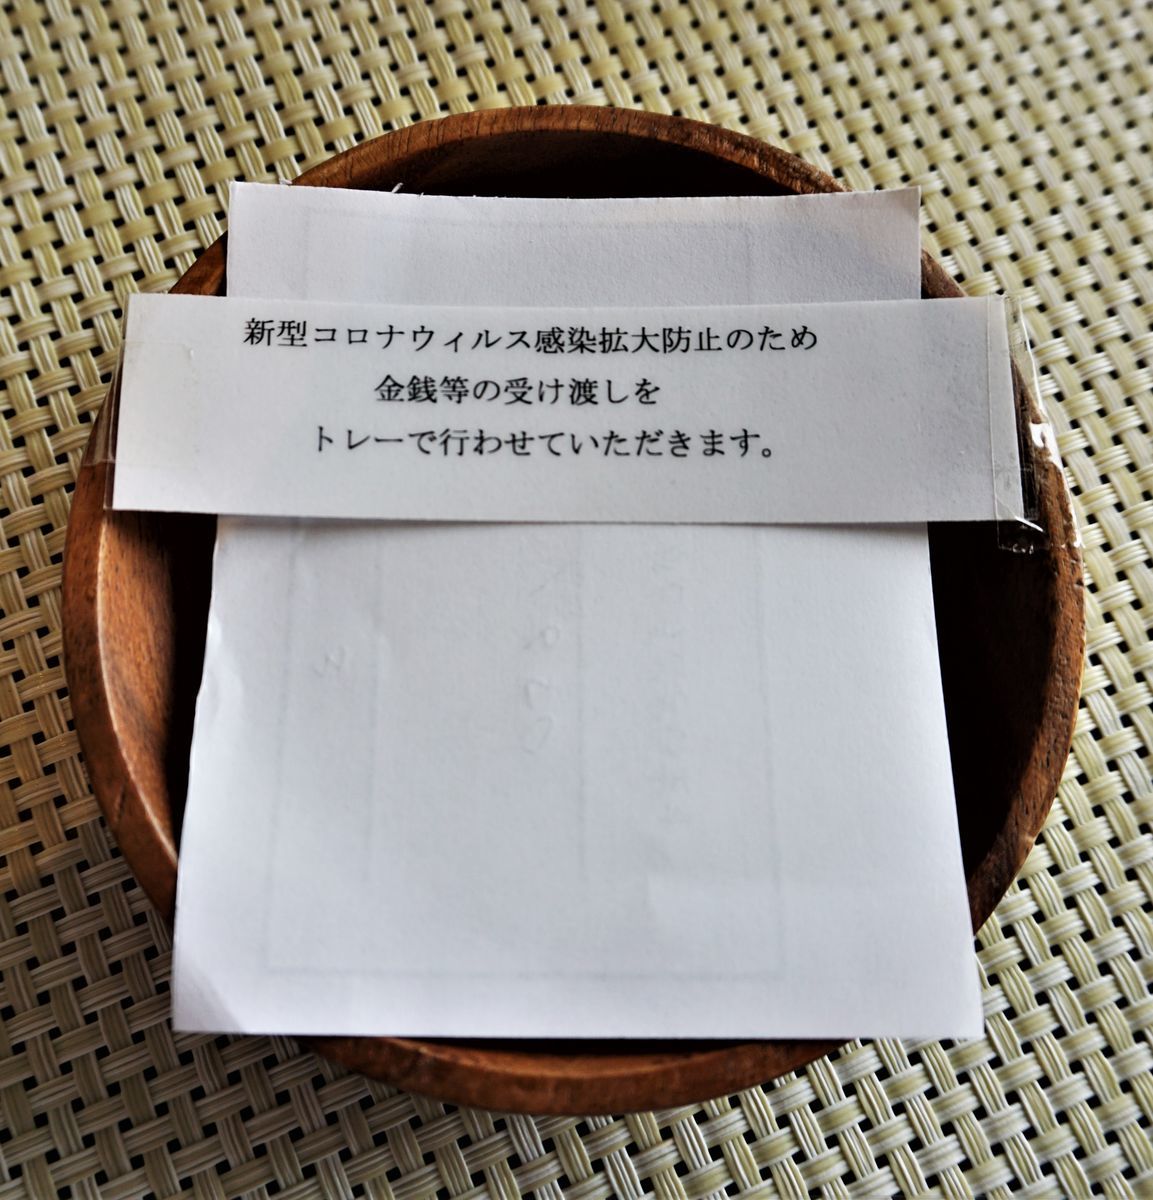 新型コロナウィルス感染拡大防止のため
金銭等の受け渡しを
トレーで行わせていただきます。